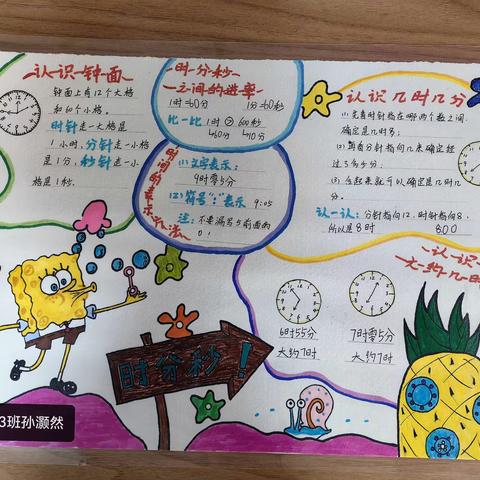 认识钟面
钟面上有12个大格
和60个小格。
时针走一大格是
1小时,分针走一小格
是1分,秒针走一小
格是1秒。
时分秒
之间的进率
1时=60分 1分=60秒
比一比 1时>600秒
60分 10分
时间的表示方法
(1)文字表示:
9时零5分
(2)符号“:”表示 9:05
注:不要漏写5前面的
0!
认识几时几分
(1)先看时针指在哪两个数之间,
确定是几时多;
(2)再看分针指向几来确定经
过了多少分;
(3)合起来就可以确定是几时几
分。
认一认:分针指向12,时针指向8,
所以是8时 8:00
认识
大约几时
6时55分
大约7时
7时零5分
大约7时
时分秒!
3班孙灏然